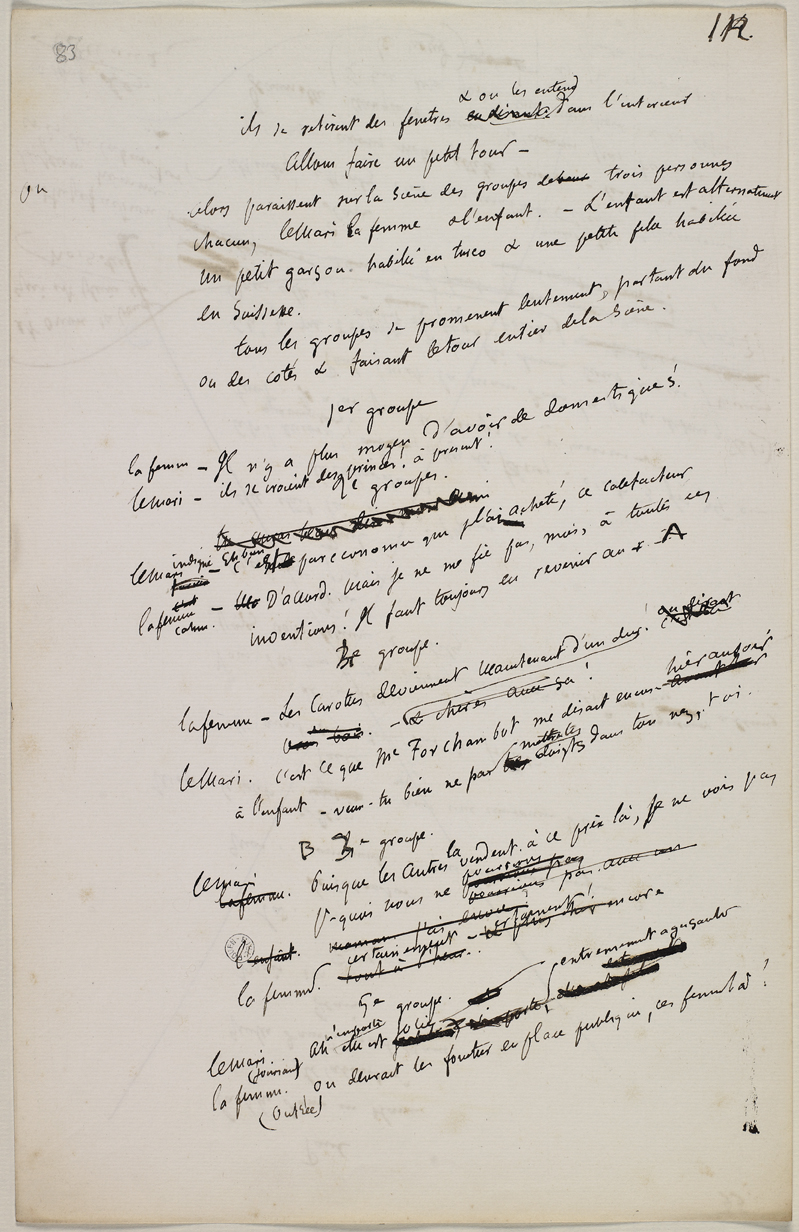 83
112.
& on les entend
ils se retirent des fenêtres en disant: dans l'interieur
Allons faire un petit tour –
on
alors paraissent sur la Scène des groupes de trois personnes
chacun, le Mari la femme & l'enfant. – L'enfant est alternativement
un petit garçon habillé en turco & une petite fille habillée
en Suissesse.
tous les groupes se promenent lentement, partant du fond
ou des cotés & faisant le tour entier de la Scène.
1er groupe
la femme – Il n'y a plus moyen d'avoir de domestiques!
le Mari – ils se croient des princes! à present!
2e groupes.
le Mari indigné – Eh bien c'est par economie que j'l'ai acheté, ce calefacteur
la femme – D'accord. Mais je ne me fie pas, moi, à toutes ces
calme.
inventions! Il faut toujours en revenir au + A
3e groupe.
la femme – Les Carottes deviennent maintenant d'un dur!
– & cheres avec ça!
hier au soir
le Mari. C'est ce que Me Forchambot me disait encore
à l'enfant – veux-tu bien ne pas mettre les doigts dans ton nez, toi.
B groupe.
le Mari. Puisque les autres la vendent à ce prix là, je ne vois pas
P-quoi nous ne
l'enfant.
certain esprit
la femme.
5e groupe.
entierement agaçante
le Mari. Ah elle est jolie, n'importe
(souriant)
la femme. on devrait les fouetter en place publique, ces femmes là!
(outrée)